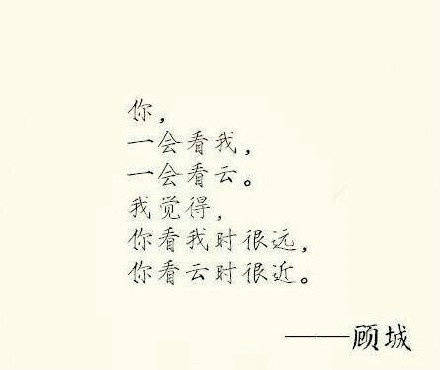 你，
一会看我，
一会看云。
我觉得，
你看我时很远，
你看云时很近。
——顾城